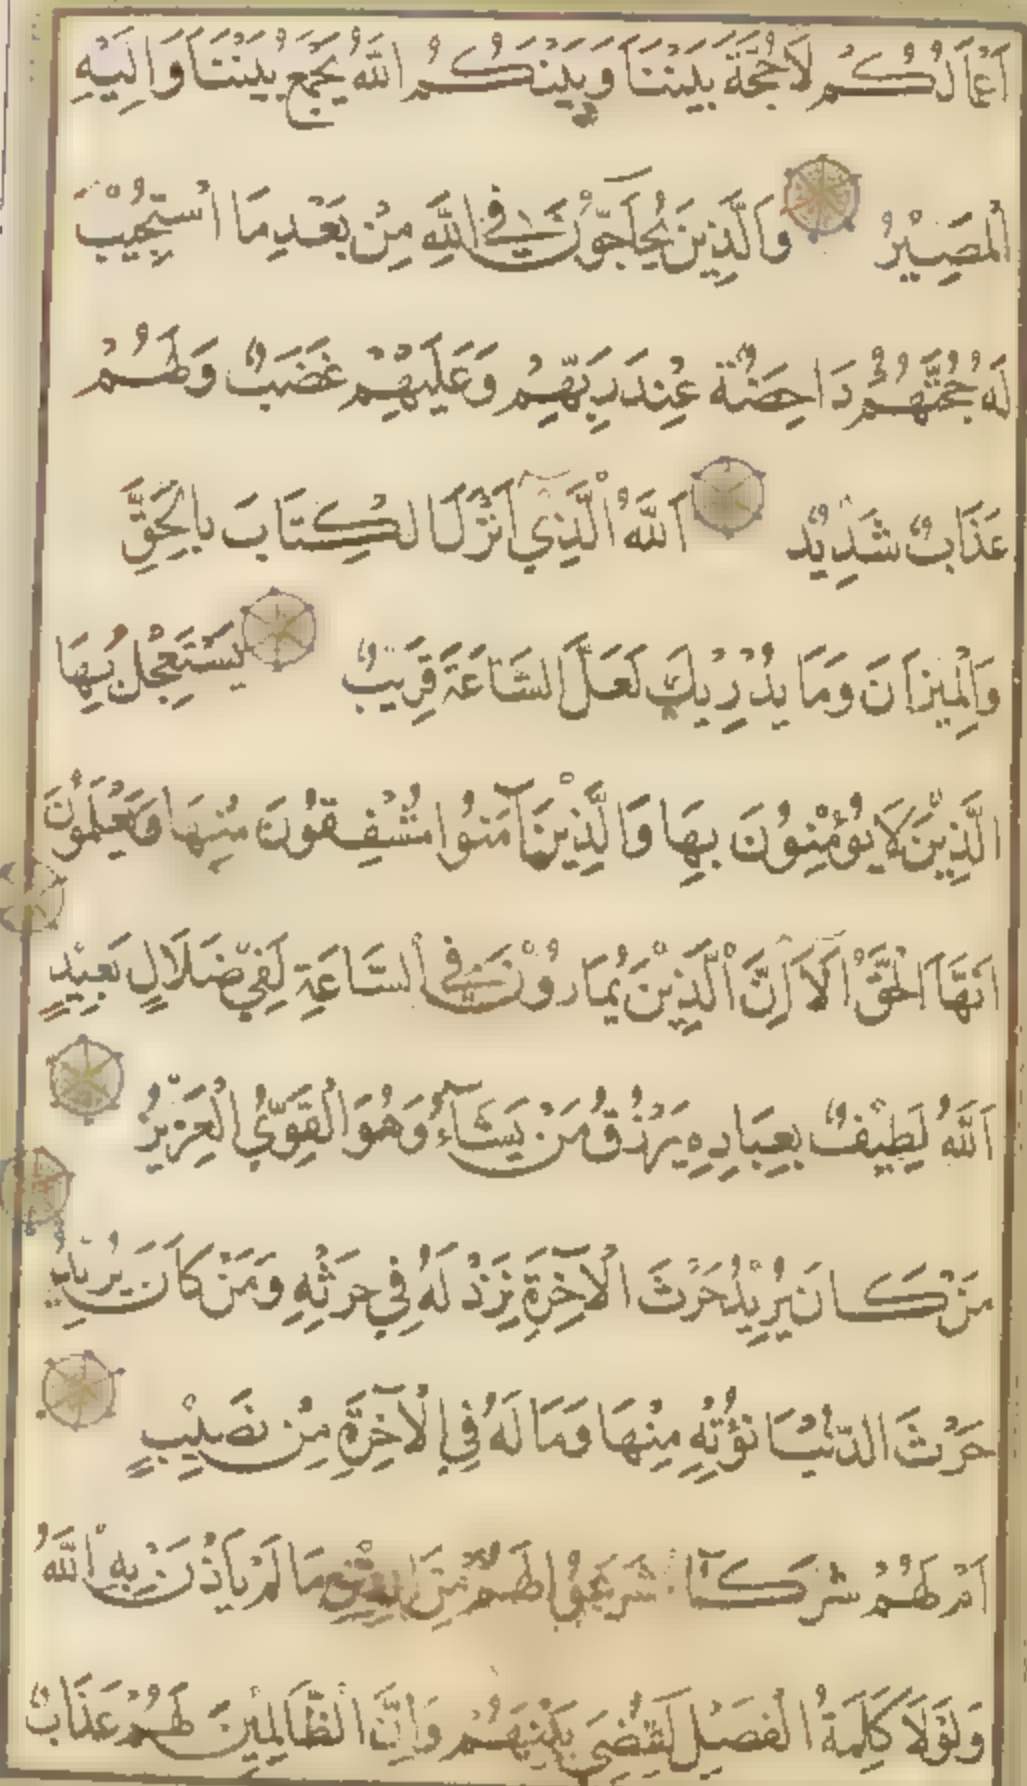 اَعْمَالُكُمْ لَا حُجَّةَ بَيْنَنَا وَبَيْنَكُمُ اللّٰهُ يَجْمَعُ بَيْنَنَا وَاِلَيْهِ
الْمَصِيْرُ وَالَّذِينَ يُحَاجّوُنَ فِي اللّٰهِ مِنْ بَعْدِ مَا اسْتُجِيْبَ
لَهُ حُجَّتُهُمْ دَاحِضَةٌ عِنْدَ رَبِّهِمْ وَعَلَيْهِمْ غَضَبٌ وَلَهُمْ
عَذَابٌ شَدِيْدٌ اَللّٰهُ الَّذِي اَنْزَلَ الْكِتَابَ بِالْحَقِّ
وَالْمِيْزَانَ وَمَا يُدْرِيْكَ لَعَلَّ السَّاعَةَ قَرِيْبٌ يَسْتَعْجِلُ بِهَا
الَّذِيْنَ لَا يُؤْمِنُوْنَ بِهَا وَالَّذِيْنَ آمَنُوا مُشْفِقُوْنَ مِنْهَا وَيَعْلَمُوْنَ
اَنَّهَا الْحَقُّ اَلَا اِنَّ الَّذِيْنَ يُمَارُوْنَ فِي السَّاعَةِ لَفِي ضَلَالٍ بَعِيْدٍ
اَللّٰهُ لَطِيْفٌ بِعِبَادِهِ يَرْزُقُ مَنْ يَشَآءُ وَهُوَ الْقَوِيُّ الْعَزِيْزُ
مَنْ كَانَ يُرِيْدُ حَرْثَ الْآخِرَةِ نَزِدْ لَهُ فِي حَرْثِهِ وَمَنْ كَانَ يُرِيْدُ
حَرْثَ الدُّنْيَا نُؤْتِهِ مِنْهَا وَمَا لَهُ فِي الْآخِرَةِ مِنْ نَصِيْبٍ
اَمْ لَهُمْ شُرَكَآءُ شَرَعُوا لَهُمْ مِنَ الدِّيْنِ مَا لَمْ يَاْذَنْ بِهِ اللّٰهُ
وَلَوْلَا كَلِمَةُ الْفَصْلِ لَقُضِيَ بَيْنَهُمْ وَاِنَّ الظَّالِمِيْنَ لَهُمْ عَذَابٌ